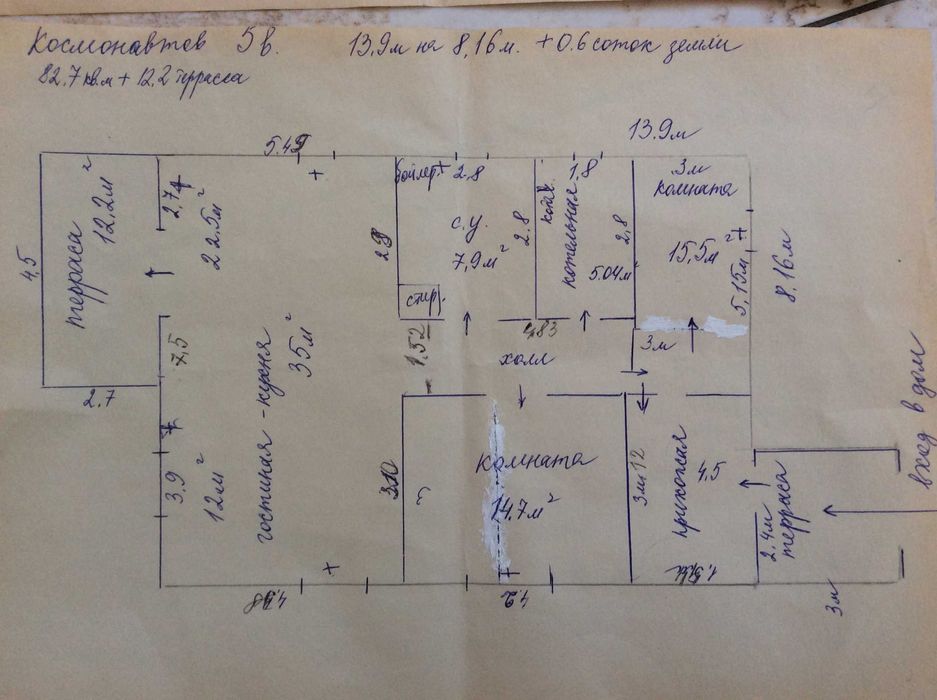 Космонавтов 5в. 13,9м на 8,16м. +0.6 соток земли
82.7 кв.м + 12,2 терраса
13.9м
5.49
4,5
терраса
12,2м²
2.7
2,74
22.5м²
7,5
3.9
12м²
гостиная-кухня
35м²
бойлер
2.8
с.у.
7,9м²
2.8
стир.
1.52
котел
1,8
котельная
5.04м²
2,8
4,83
3м
комната
15,5м²
5,15м
8,16м
холл
3м
3.10
комната
14.7м²
3м12
прихожая
4,5
2.4м
терраса
вход в дом
3м
4.2